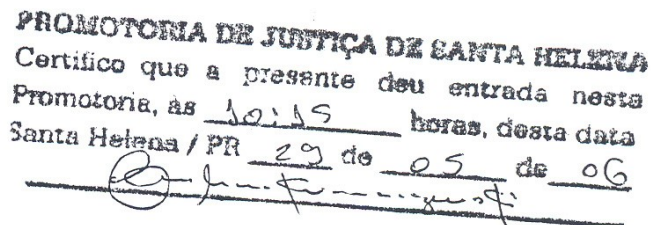 PROMOTORIA DE JUSTIÇA DE SANTA HELENA
Certifico que a presente deu entrada nesta
Promotoria, às 10:15 horas, desta data
Santa Helena / PR 29 de 05 de 06